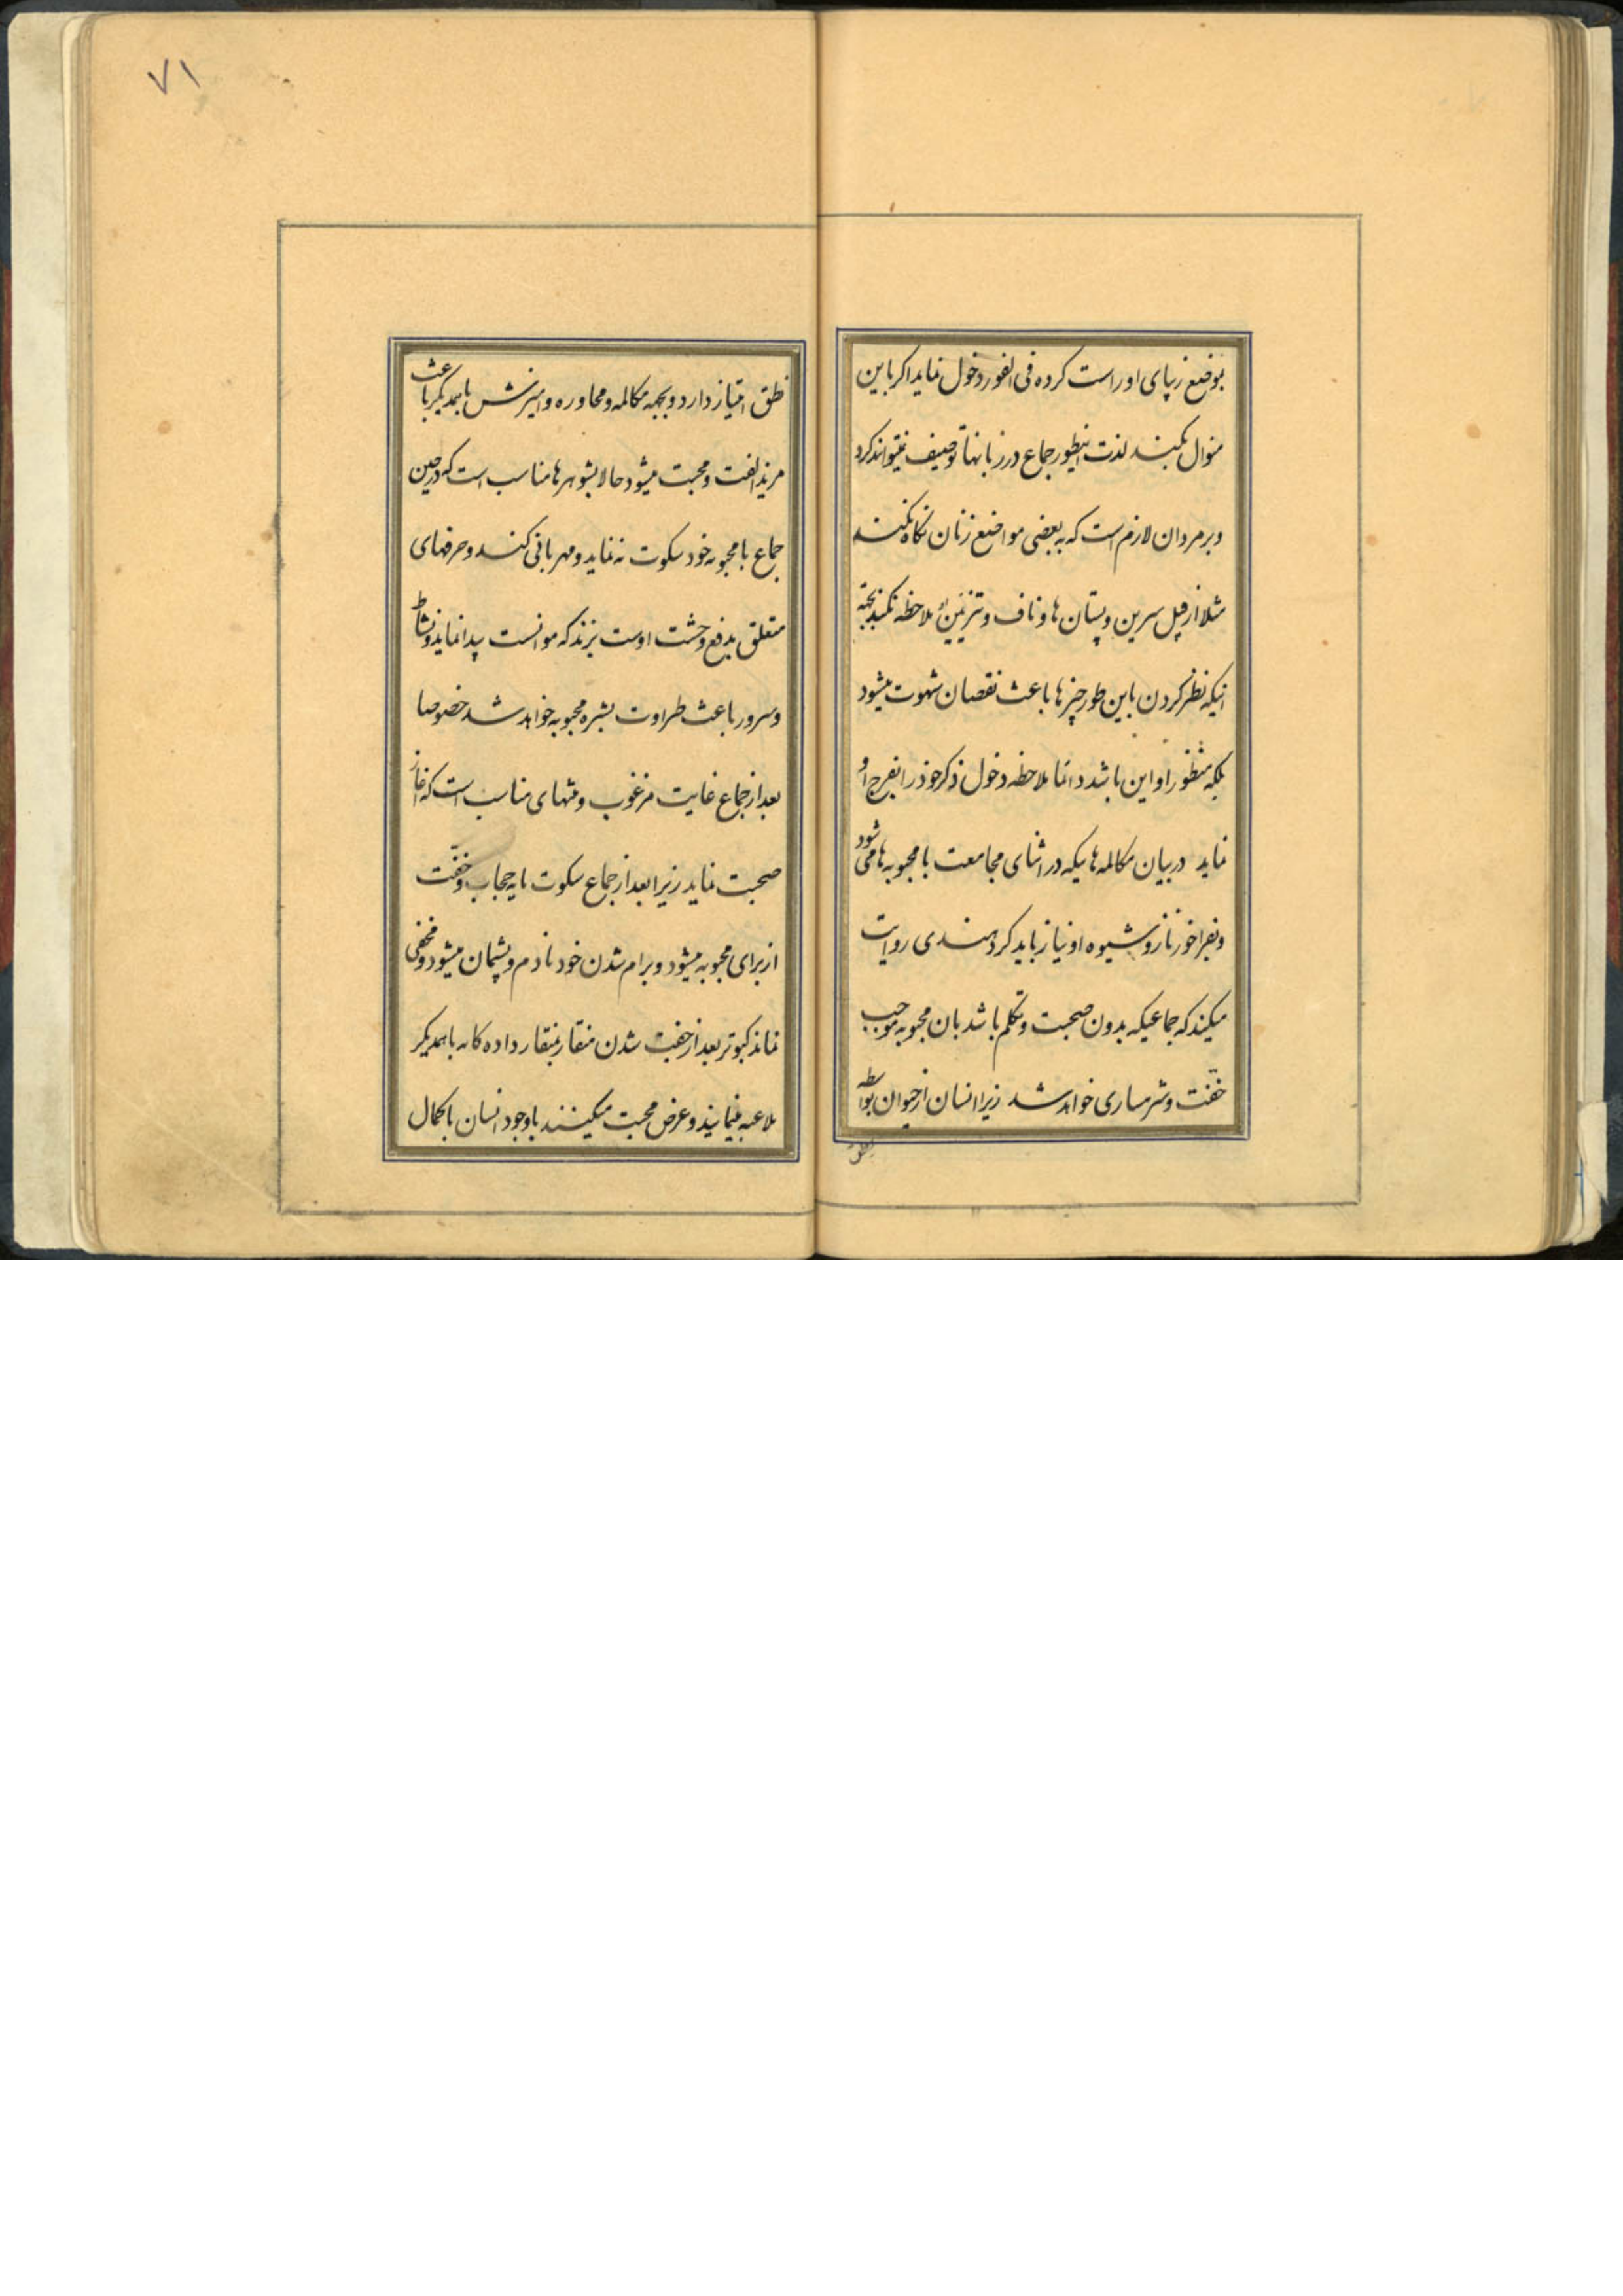 بموضع زیپای او راست کرده فی الفور دخول نماید اکر باین
منوال بکنند لذت اینطور جماع در زبانها توصیف نمیتواند کرد
و بر مردان لازم است که به بعضی مواضع زنان نکاه نکنند
مثلا از قبل سرین و پستان ها و ناف و ملاحظه نکنند بجهة
اینکه نظر کردن باین طور چیزها باعث نقصان شهوت میشود
بلکه منظور او این باشد دائما ملاحظه دخول ذکر خود را بفرج او
نماید در بیان مکالمه هائیکه در اثنای مجامعت با محبوبه ها می شود
و بفراخور ناز و شیوه او نیاز باید کرد هندی روایت
میکند که جماعیکه بدون صحبت و تکلم باشد بان محبوبه موجب
خفّت و شرمساری خواهد شد زیرا انسان از حیوان بواسطه
نطق
۷۱
نطق امتیاز دارد و بجهة مکالمه و محاوره و امیزش باهمدیکر باعث
مزید الفت و محبت میشود حالا بشوهرها مناسب است که در حین
جماع با محبوبه خود سکوت نه نماید و مهربانی کند و حرفهای
متعلق بدفع وحشت اوست بزند که موانست پیدا نماید و نشاط
و سرور باعث طراوت بشره محبوبه خواهد شد خصوصا
بعد از جماع غایت مرغوب و منتهای مناسب است که اغاز
صحبت نماید زیرا بعد از جماع سکوت مایه حجاب و خفّت
از برای محبوبه میشود و برام شدن خود نادم و پشیمان میشود و مخفی
نماند کبوتر بعد از جفت شدن منقار بمنقار داده کانه باهمدیکر
ملاعبه مینمایند و عرض محبت میکنند با وجود انسان با کمال